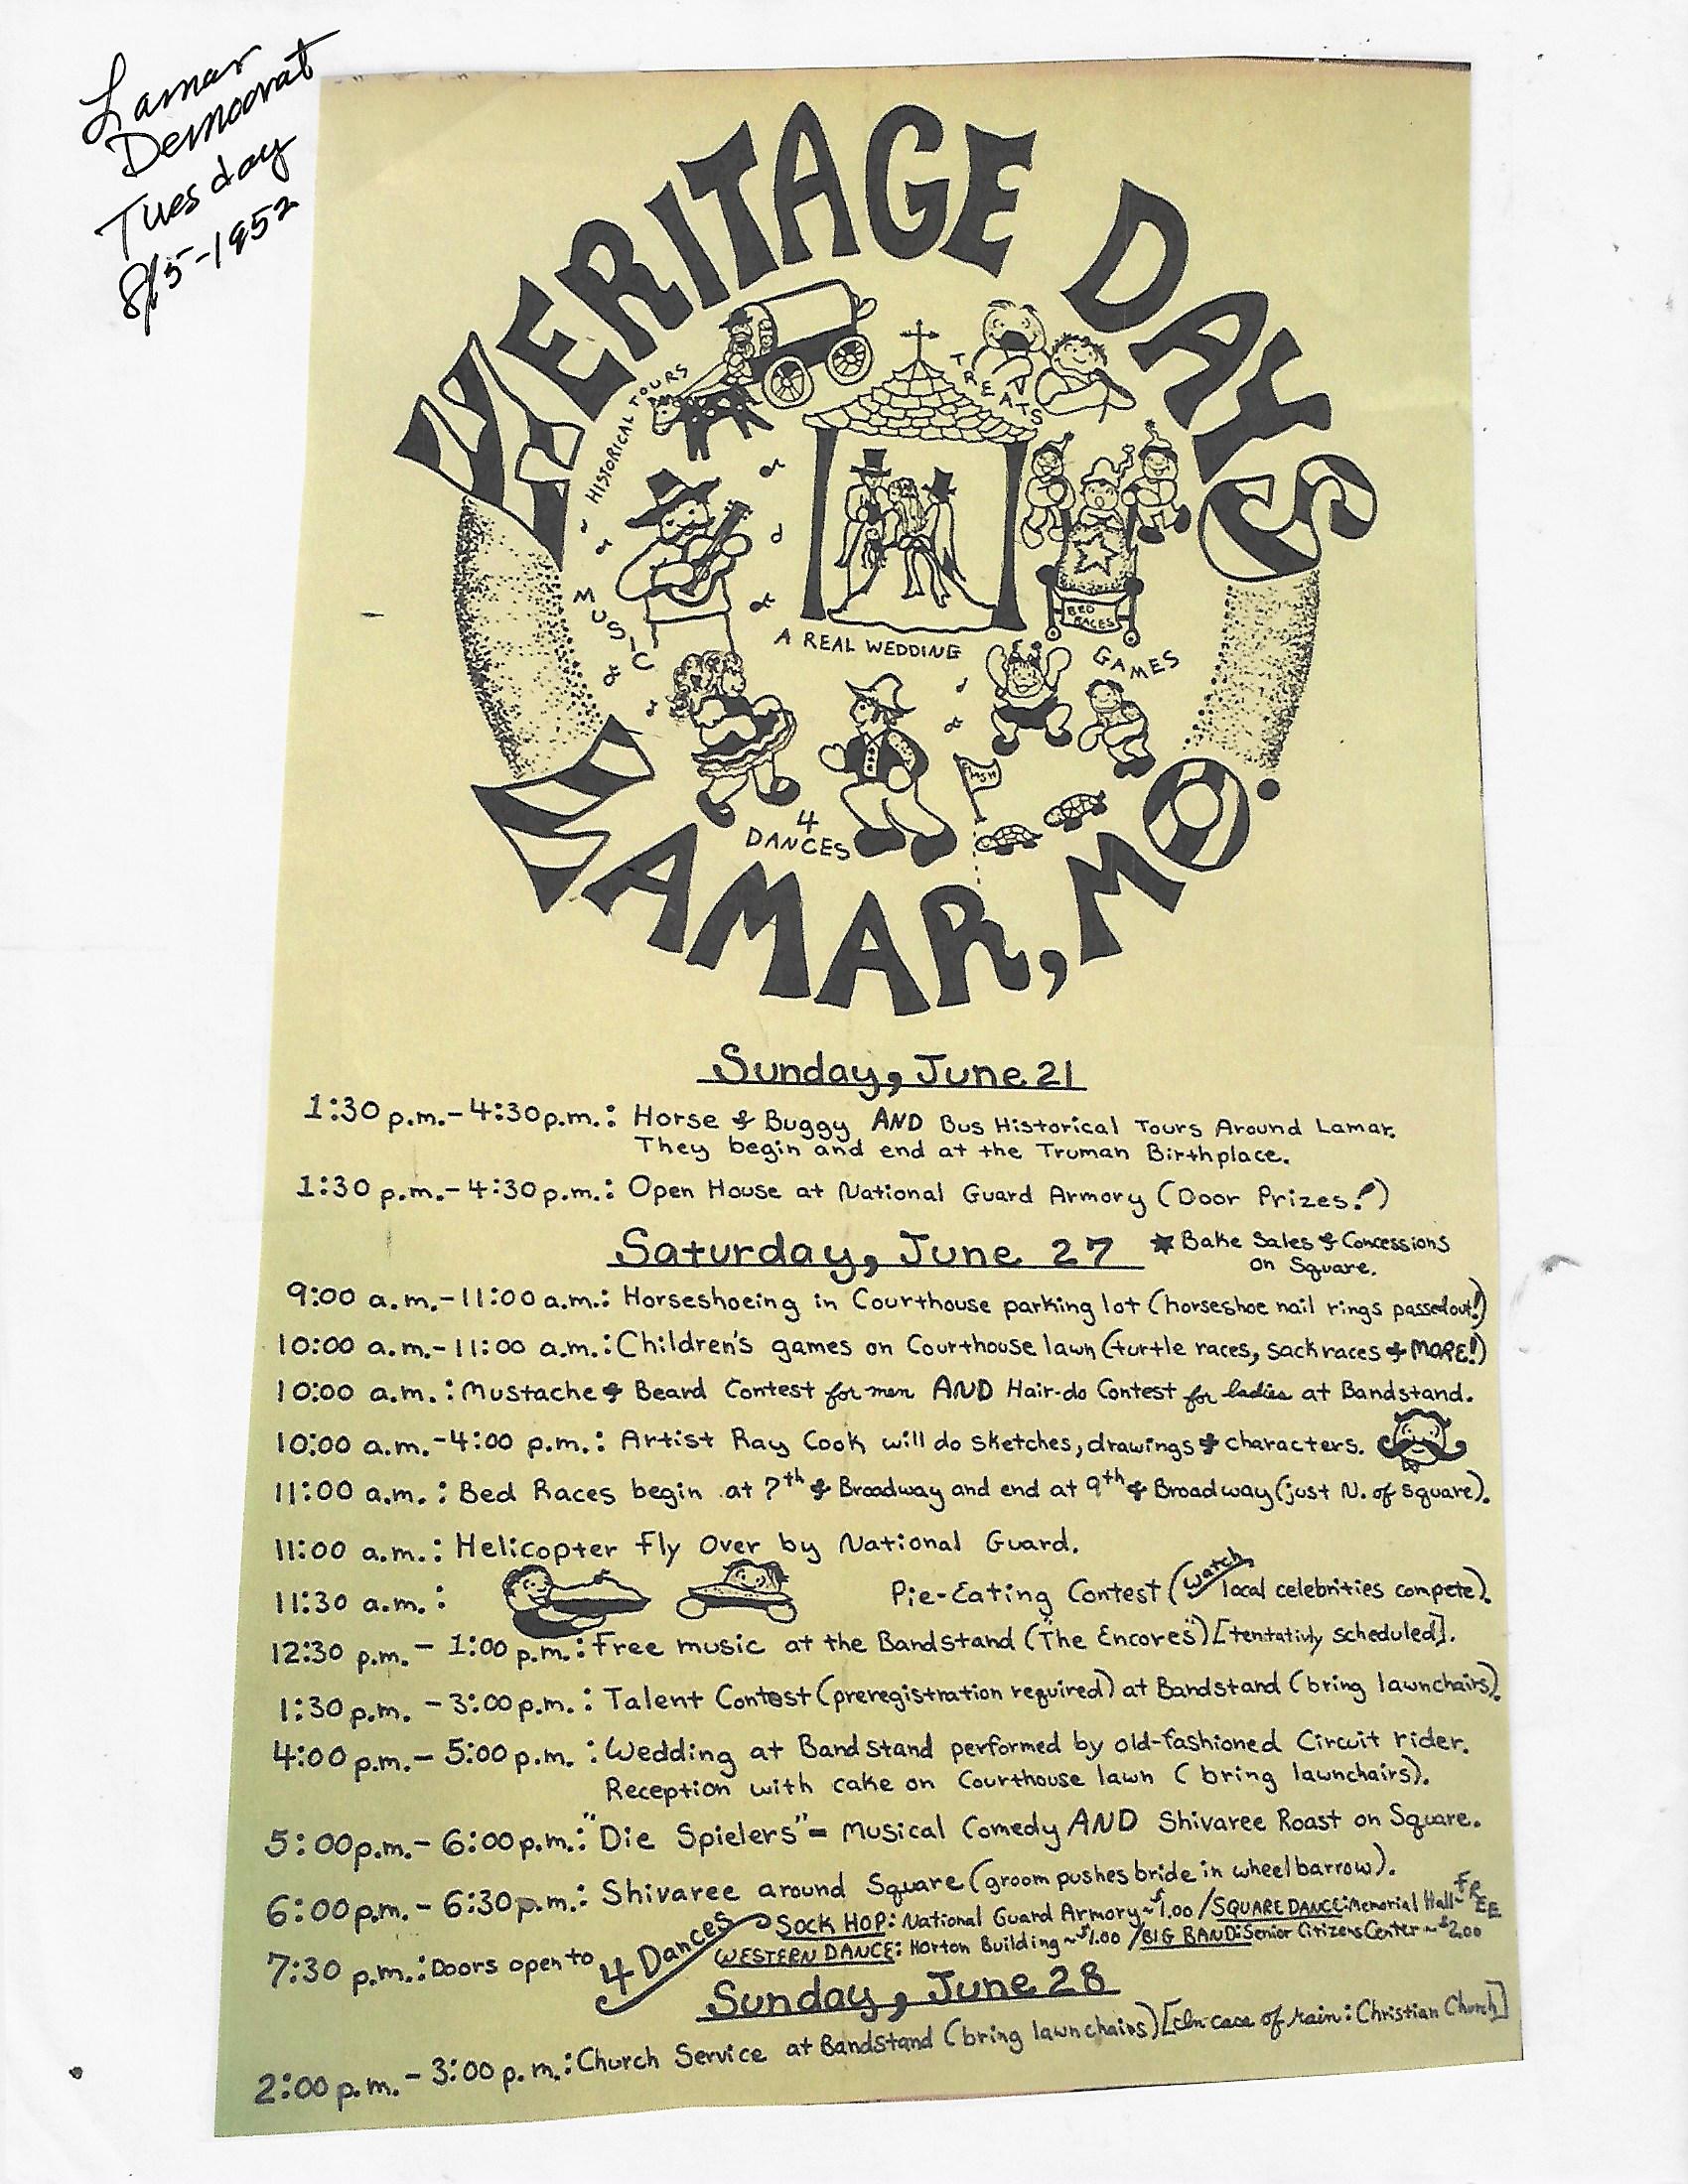 Lamar
Democrat
Tuesday
8/5-1952
HERITAGE DAYS
HISTORICAL TOURS
TREATS
MUSIC
A REAL WEDDING
BED
RACES
GAMES
4
DANCES
LAMAR, MO.
Sunday, June 21
1:30 p.m.-4:30p.m.: Horse & Buggy AND Bus Historical Tours Around Lamar.
They begin and end at the Truman Birthplace.
1:30 p.m.-4:30p.m.: Open House at National Guard Armory (Door Prizes!)
Saturday, June 27 ★ Bake Sales & Concessions
on Square.
9:00 a.m.-11:00 a.m.: Horseshoeing in Courthouse parking lot (horseshoe nail rings passed out!)
10:00 a.m.-11:00 a.m.: Children's games on Courthouse lawn (turtle races, sack races & MORE!)
10:00 a.m.: Mustache & Beard Contest for men AND Hair-do Contest for ladies at Bandstand.
10:00 a.m.-4:00 p.m.: Artist Ray Cook will do sketches, drawings & characters.
11:00 a.m.: Bed Races begin at 7th & Broadway and end at 9th & Broadway (just N. of square).
11:00 a.m.: Helicopter Fly Over by National Guard.
11:30 a.m.: Pie-Eating Contest (Watch local celebrities compete).
12:30 p.m. - 1:00 p.m.: Free music at the Bandstand ("The Encores") [tentativly scheduled].
1:30 p.m. - 3:00 p.m.: Talent Contest (preregistration required) at Bandstand (bring lawnchairs).
4:00 p.m. - 5:00 p.m.: Wedding at Bandstand performed by old-fashioned Circuit rider.
Reception with cake on Courthouse lawn (bring lawnchairs).
5:00p.m.- 6:00p.m.: "Die Spielers" = Musical Comedy AND Shivaree Roast on Square.
6:00p.m. - 6:30p.m.: Shivaree around Square (groom pushes bride in wheelbarrow).
7:30 p.m.: Doors open to 4 Dances SOCK HOP: National Guard Armory~$1.00 / SQUARE DANCE: Memorial Hall~FREE
WESTERN DANCE: Horton Building~$1.00 / BIG BAND: Senior Citizens Center~$2.00
Sunday, June 28
2:00 p.m. - 3:00 p.m.: Church Service at Bandstand (bring lawnchairs) [In case of rain: Christian Church]